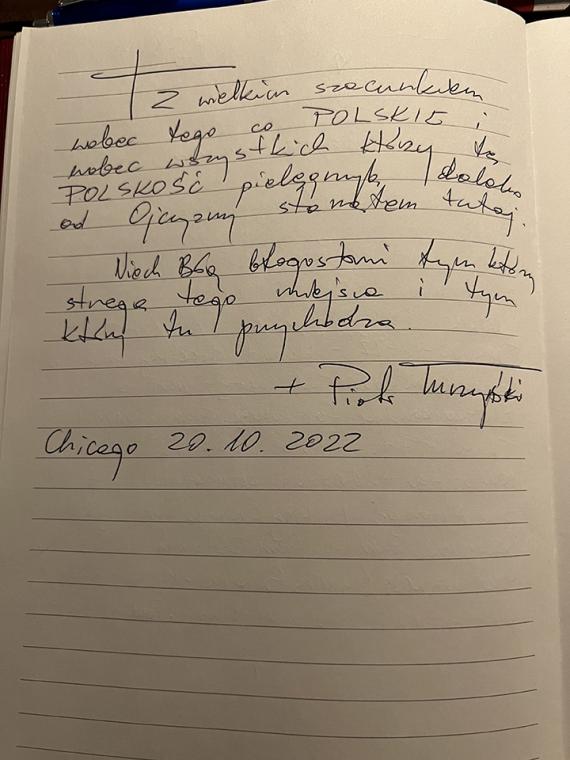 Z wielkim szacunkiem
wobec tego co POLSKIE i
wobec wszystkich którzy tę
POLSKOŚĆ pielęgnują, daleko
od Ojczyzny stanąłem tutaj.
Niech Bóg błogosławi tym którzy
strzegą tego miejsca i tym
którzy tu przychodzą.
+ Piotr Turzyński
Chicago 20.10.2022